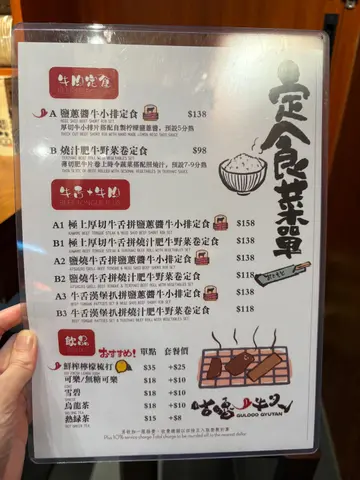 牛肉定食
A 鹽蔥醬牛小排定食 $138
MISO SAUCE BEEF SHORT RIB SET
厚切牛小排片搭配自製檸檬鹽蔥醬，預設5分熟
B 燒汁肥牛野菜卷定食 $98
薄切肥牛片卷上時令蔬菜搭配照燒汁，預設7-9分熟
牛舌+牛肉
A1 極上厚切牛舌拼鹽蔥醬牛小排定食 $158
B1 極上厚切牛舌拼燒汁肥牛野菜卷定食 $138
A2 鹽燒牛舌拼鹽蔥醬牛小排定食 $138
B2 鹽燒牛舌拼燒汁肥牛野菜卷定食 $118
A3 牛舌漢堡扒拼鹽蔥醬牛小排定食 $138
B3 牛舌漢堡扒拼燒汁肥牛野菜卷定食 $118
飲品 おすすめ! 單點 套餐價
鮮榨檸檬梳打 $35 +$25
可樂/無糖可樂 $18 +$10
雪碧 $18 +$10
烏龍茶 $18 +$10
熱綠茶 $15 +$8
定食菜單
咕嚕牛舌
GULOOO GYUTAN
Plus 10% service charge. Total charge to be rounded off to the nearest dollar